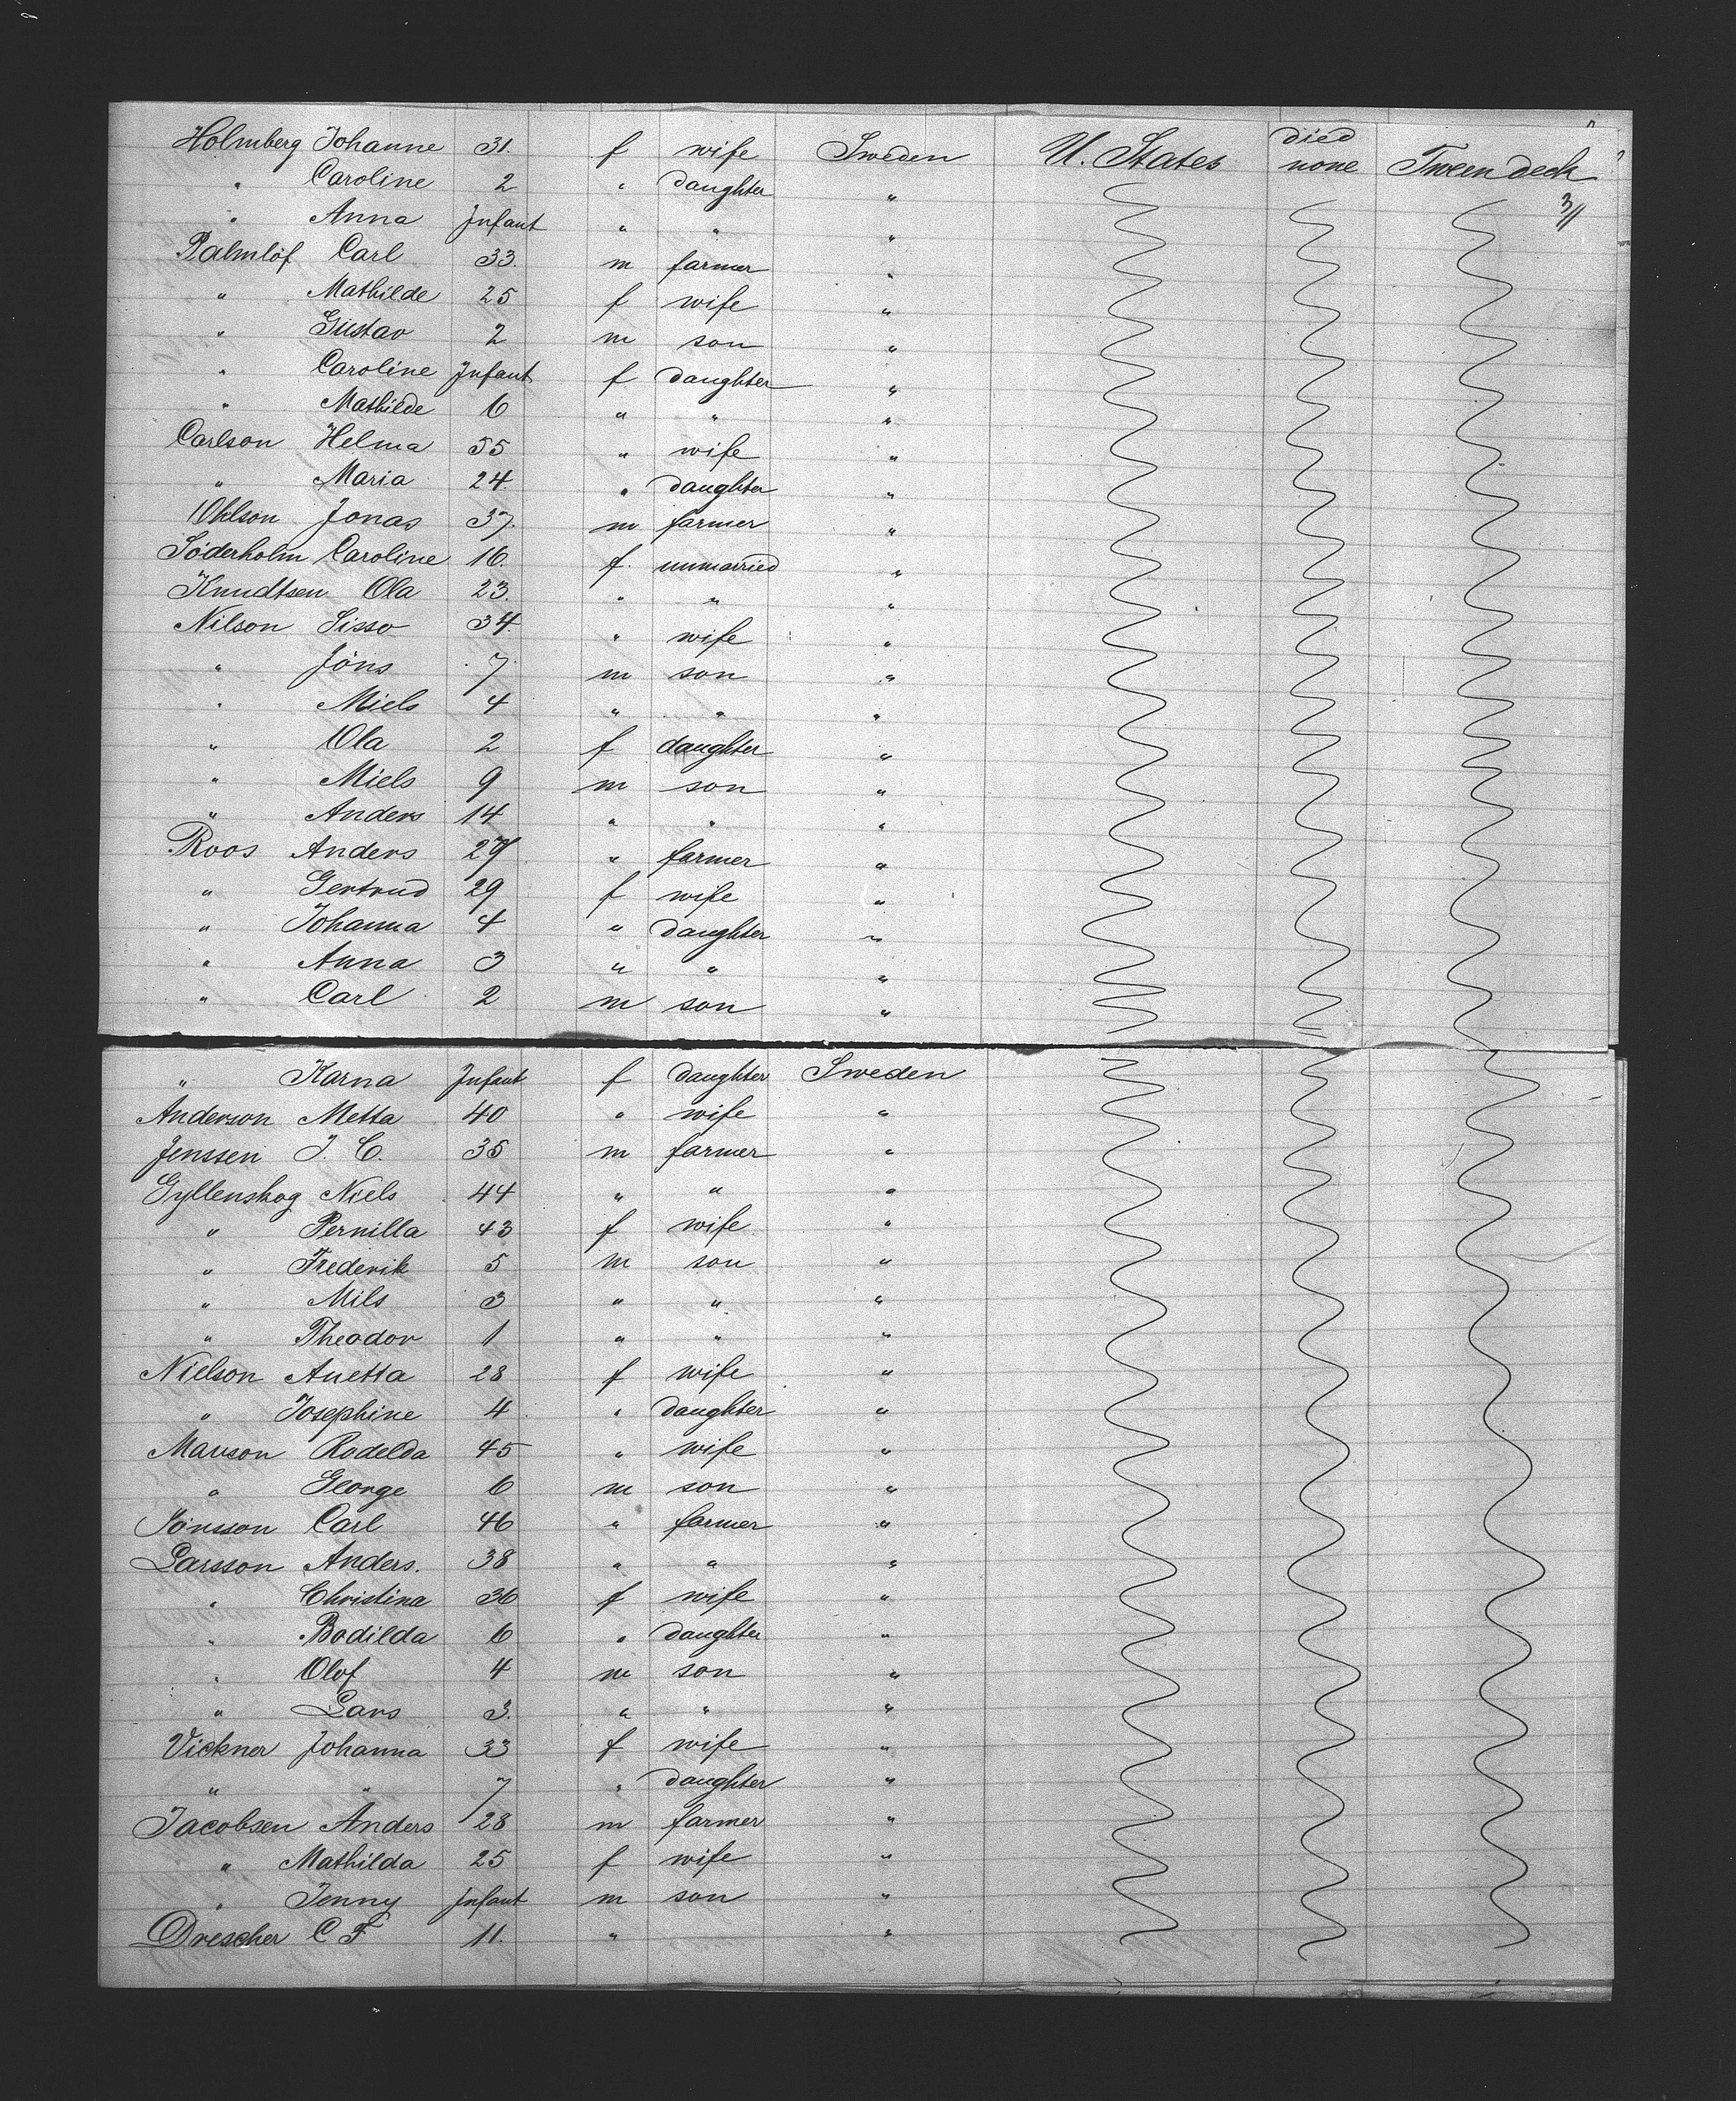 Holmberg Johanne 31. f wife Sweden U. States died none Tween deck
" Caroline 2 " daughter "
" Anna Infant " " "
Palmlöf Carl 33. m farmer "
" Mathilde 25 f wife "
" Gustav 2 m son "
" Caroline Infant f daughter "
" Mathilde 6 " " "
Carlson Helma 55 " wife "
" Maria 24 " daughter "
Ohlson Jonas 37. m farmer "
Söderholm Caroline 16. f. unmarried "
Knudtsen Ola 23. " " "
Nilson Sisso 34. " wife "
" Jöns 7 m son "
" Miels 4 " " "
" Ola 2 f daughter "
" Miels 9 m son "
" Anders 14 " " "
Roos Anders 27 " farmer "
" Gertrud 29 f wife "
" Johanna 4 " daughter "
" Anna 3 " " "
" Carl 2 m son "
" Karna Infant f daughter Sweden
Anderson Metta 40 " wife "
Jenssen J. C. 35 m farmer "
Gyllenskog Niels 44 " " "
" Pernilla 43 f wife "
" Frederik 5 m son "
" Mils 3 " " "
" Theodor 1 " " "
Nielson Anetta 28 f wife "
" Josephine 4 " daughter "
Manson Rodelda 45 " wife "
" George 6 m son "
Jönsson Carl 46 " farmer "
Larsson Anders. 38 " " "
" Christina 36 f wife "
" Bodilda 6 " daughter "
" Olof 4 m son "
" Lars 3. " " "
Vickner Johanna 33 f wife "
" " 7 " daughter "
Jacobsen Anders 28 m farmer "
" Mathilda 25 f wife "
" Jenny Infant m son "
Drescher C F 11. " "